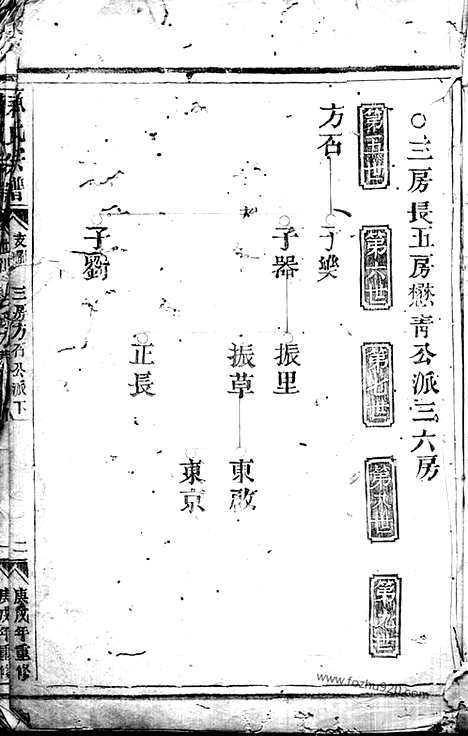 ○三房長五房懋青公派三六房
第五世
第六世
第七世
第八世
第九世
方石
子樂
子器
子劉
振里
振草
正長
東啟
東京
氏宗譜
三房方石公派下
二
庚戌年重修
庚戌年重修
www.fozhu920.com